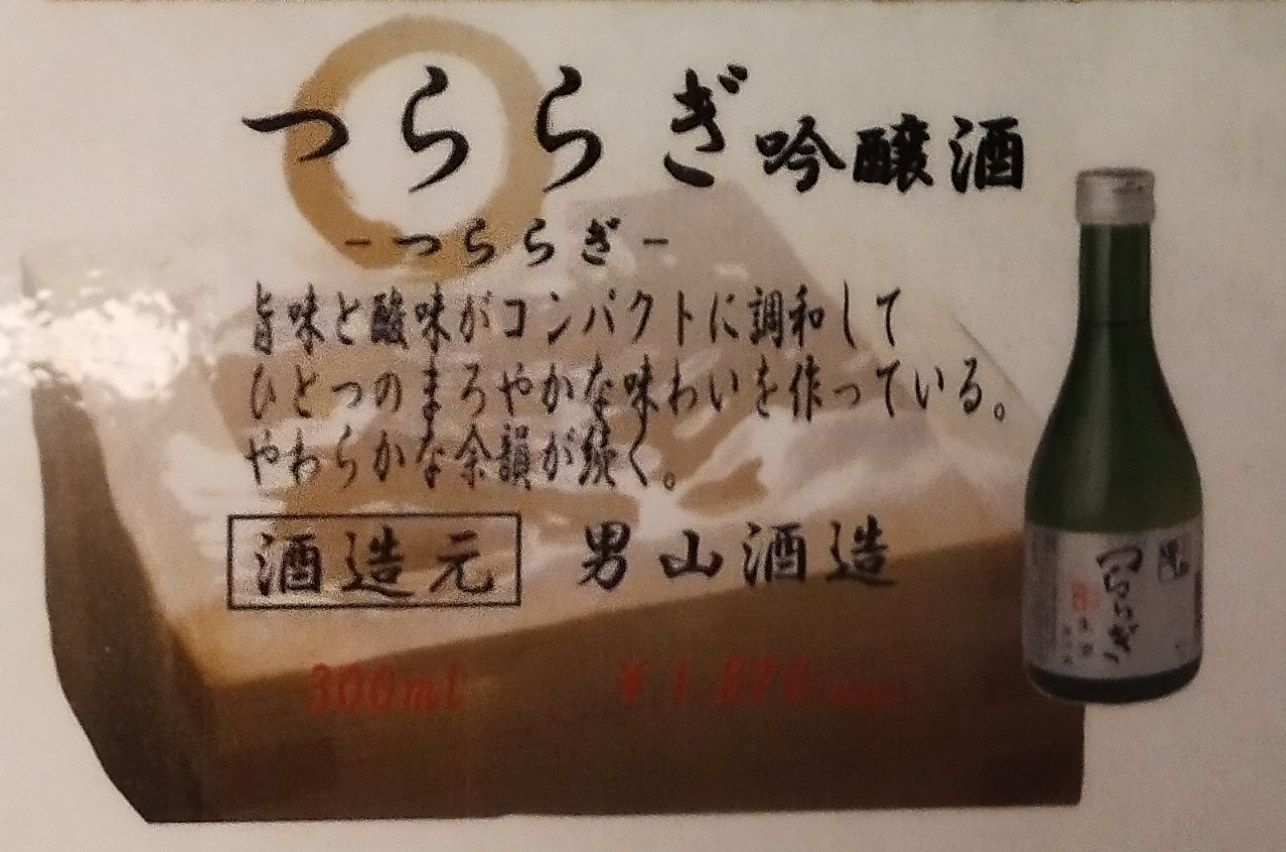 つららぎ吟醸酒
-つららぎ-
旨味と酸味がコンパクトに調和して
ひとつのまろやかな味わいを作っている。
やわらかな余韻が続く。
酒造元 男山酒造
300ml ¥1,870